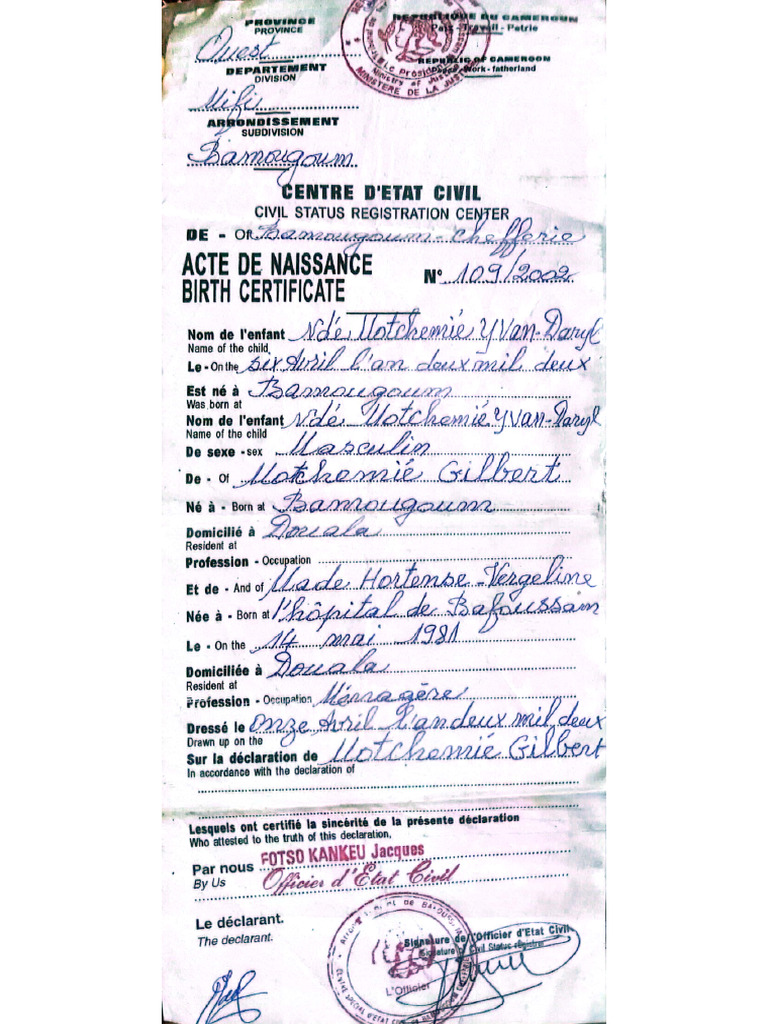 PROVINCE
PROVINCE
Ouest
DEPARTEMENT
DIVISION
Mifi
ARRONDISSEMENT
SUBDIVISION
Bamougoum
REPUBLIQUE DU CAMEROUN
Paix - Travail - Patrie
REPUBLIC OF CAMEROON
Peace - Work - fatherland
MINISTERE DE LA JUSTICE
CENTRE D'ETAT CIVIL
CIVIL STATUS REGISTRATION CENTER
DE - OF Bamougoum-Chefferie
ACTE DE NAISSANCE
BIRTH CERTIFICATE
N° 109/2002
Nom de l'enfant Ndé Motchemié Yvan-Daryl
Name of the child
Le - On the six Avril l'an deux mil deux
Est né à Bamougoum
Was born at
Nom de l'enfant Ndé Motchemié Yvan-Daryl
Name of the child
De sexe - sex Masculin
De - Of Motchemié Gilbert
Né à - Born at Bamougoum
Domicilié à Douala
Resident at
Profession - Occupation
Et de - And of Made Hortense-Vergeline
Née à - Born at l'hôpital de Bafoussam
Le - On the 14 mai 1981
Domiciliée à Douala
Resident at
Profession - Occupation Ménagère
Dressé le Onze Avril l'an deux mil deux
Drawn up on the
Sur la déclaration de Motchemié Gilbert
In accordance with the declaration of
Lesquels ont certifié la sincérité de la présente déclaration
Who attested to the truth of this declaration,
Par nous FOTSO KANKEU Jacques
By Us Officier d'Etat Civil
Le déclarant.
The declarant.
Signature de l'Officier d'Etat Civil
Signature of Civil Status registrar
L'Officier